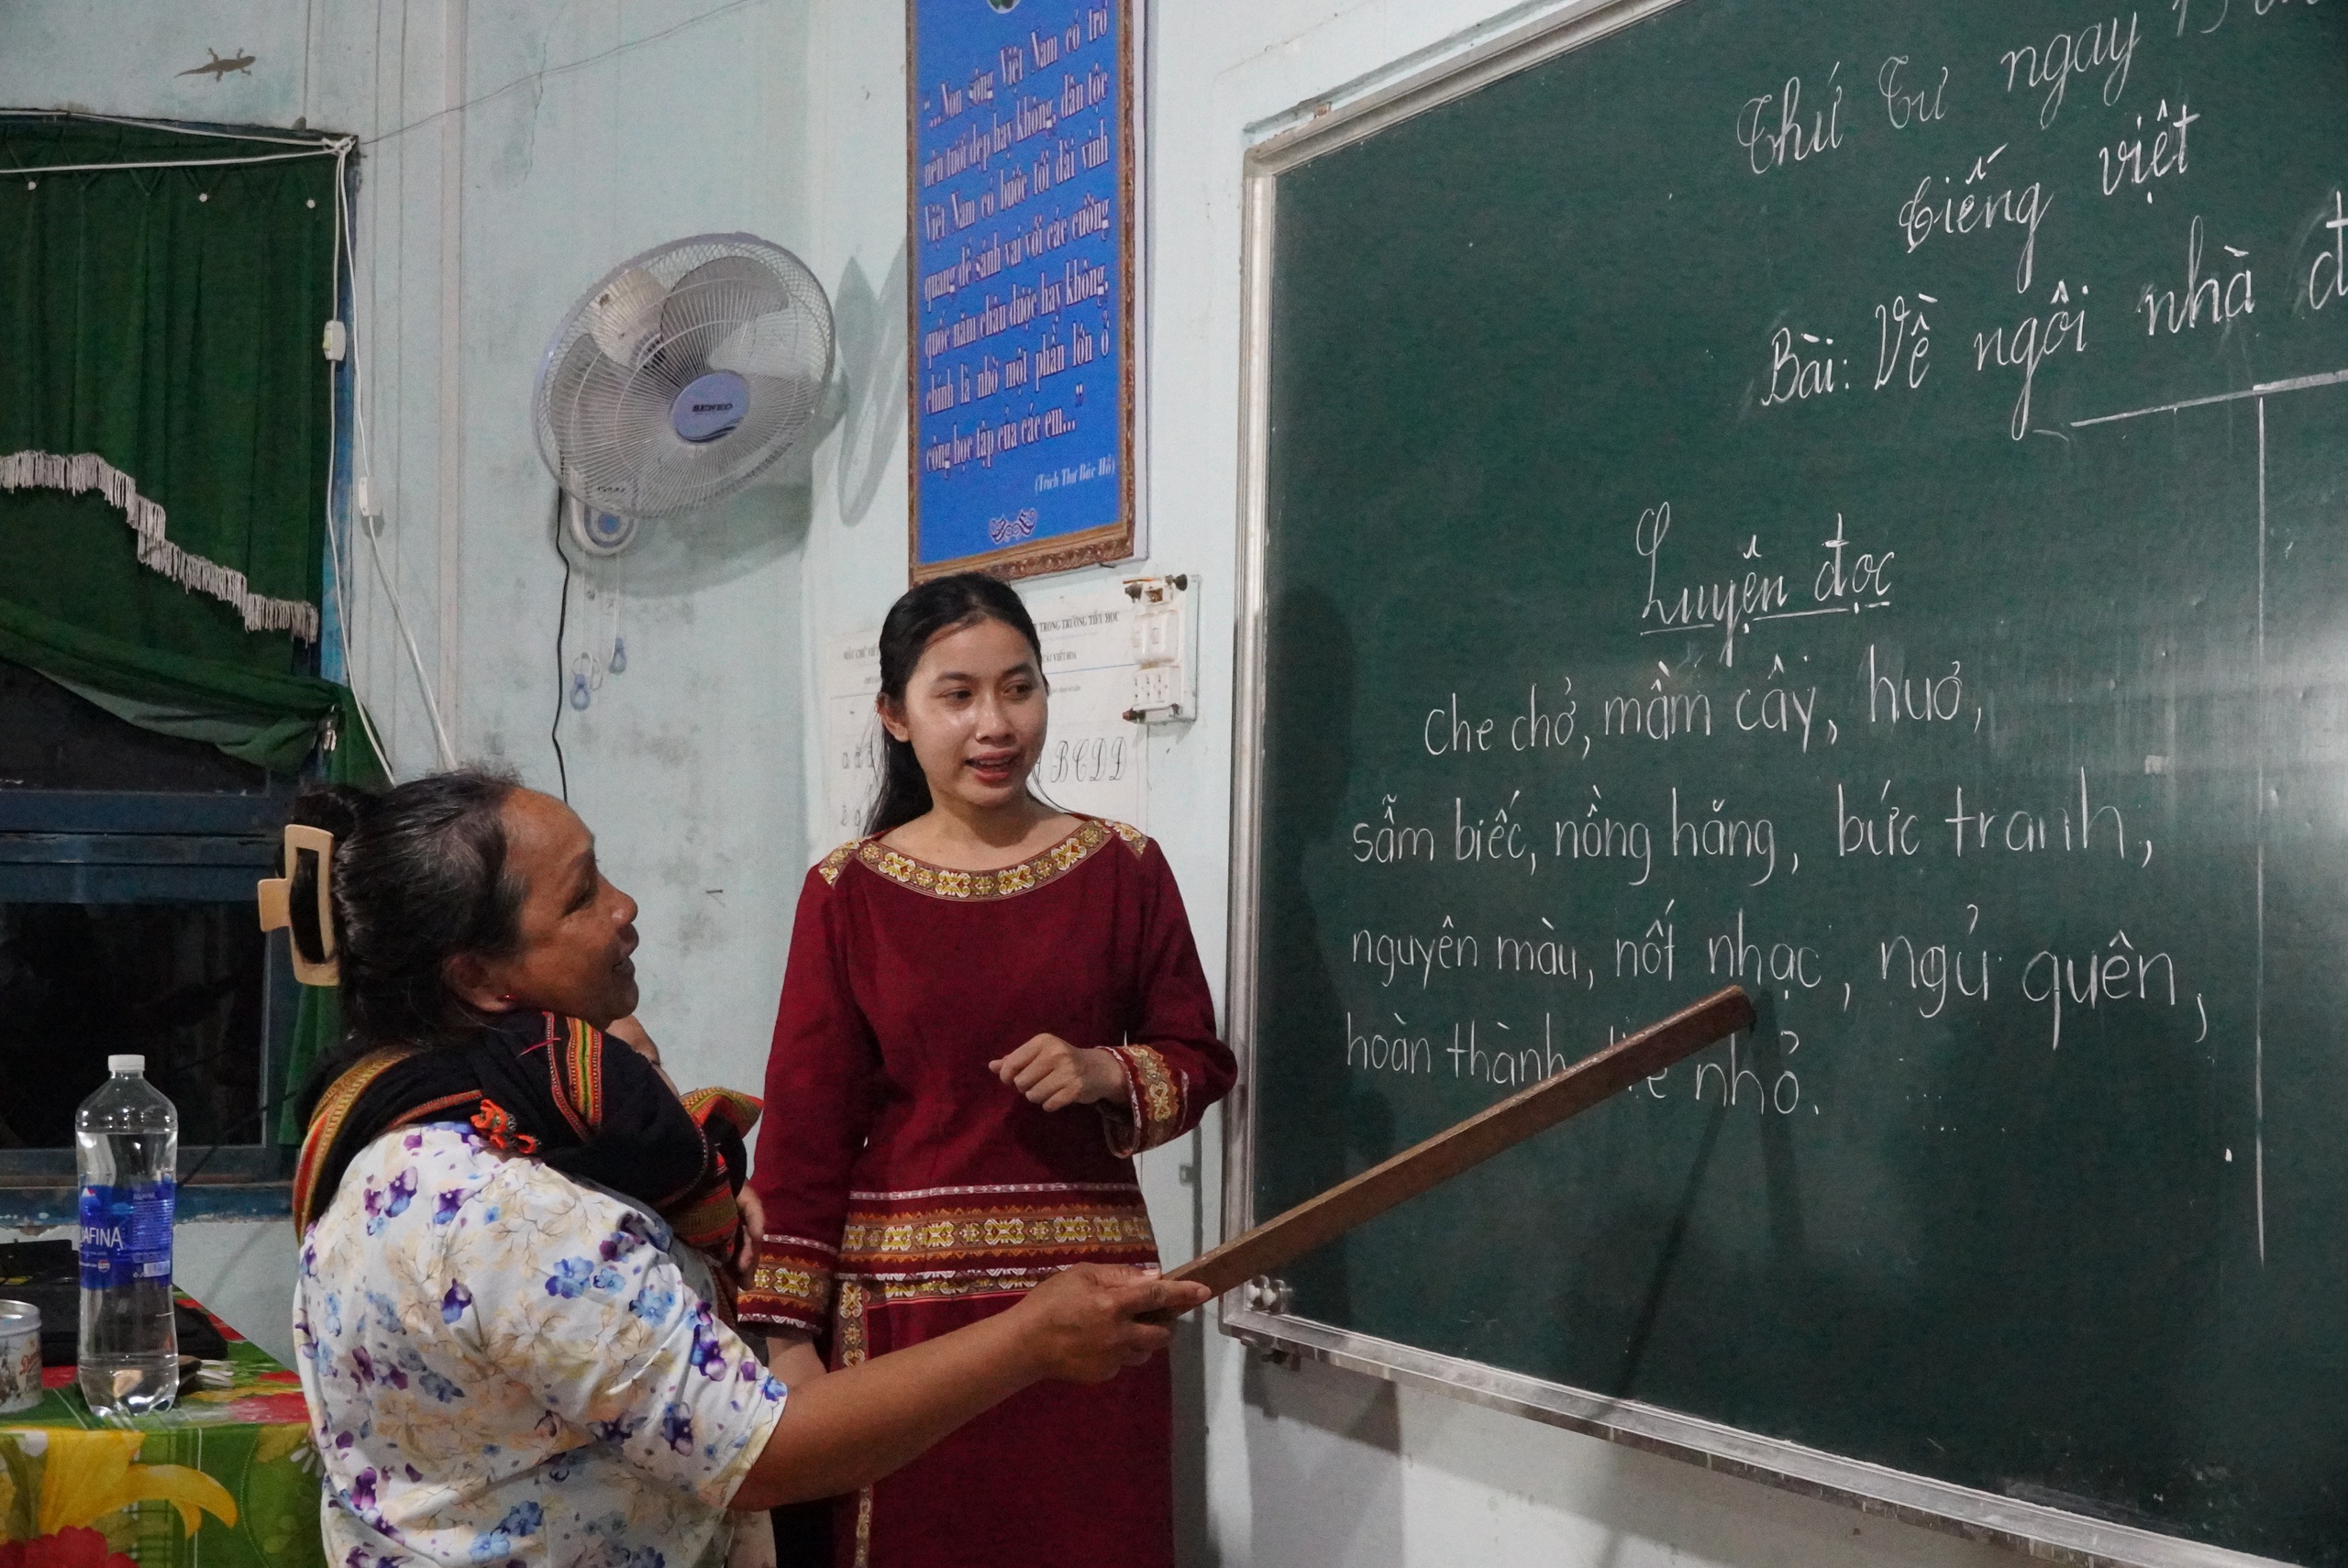 "...Non sông Việt Nam có trở
nên tươi đẹp hay không, dân tộc
Việt Nam có bước tới đài vinh
quang để sánh vai với các cường
quốc năm châu được hay không,
chính là nhờ một phần lớn ở
công học tập của các em..."
(Trích Thư Bác Hồ)
SENKO
TRONG TRƯỜNG TIỂU HỌC
MẪU CHỮ VIẾT
CÁI VIẾT HOA
B C D Đ
AFINA
Thứ Tư ngay 15
tiếng việt
Bài: Về ngôi nhà đ
Luyện đọc
che chở, mầm cây, huơ,
sẫm biếc, nồng hăng, bức tranh,
nguyên màu, nốt nhạc, ngủ quên,
hoàn thành, nhỏ.